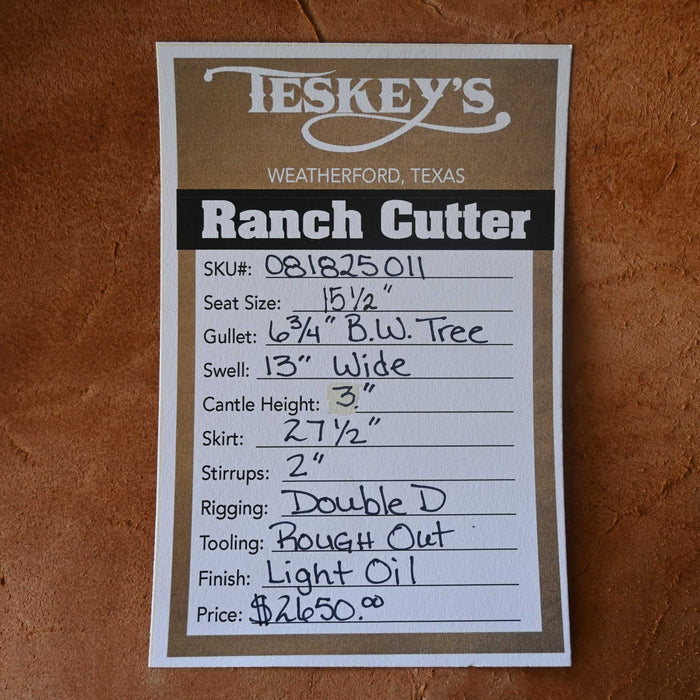 TESKEY'S
WEATHERFORD, TEXAS
Ranch Cutter
SKU#: 081825011
Seat Size: 15 1/2"
Gullet: 6 3/4" B.W. Tree
Swell: 13" Wide
Cantle Height: 3"
Skirt: 27 1/2"
Stirrups: 2"
Rigging: Double D
Tooling: ROUGH Out
Finish: Light Oil
Price: $2650.00